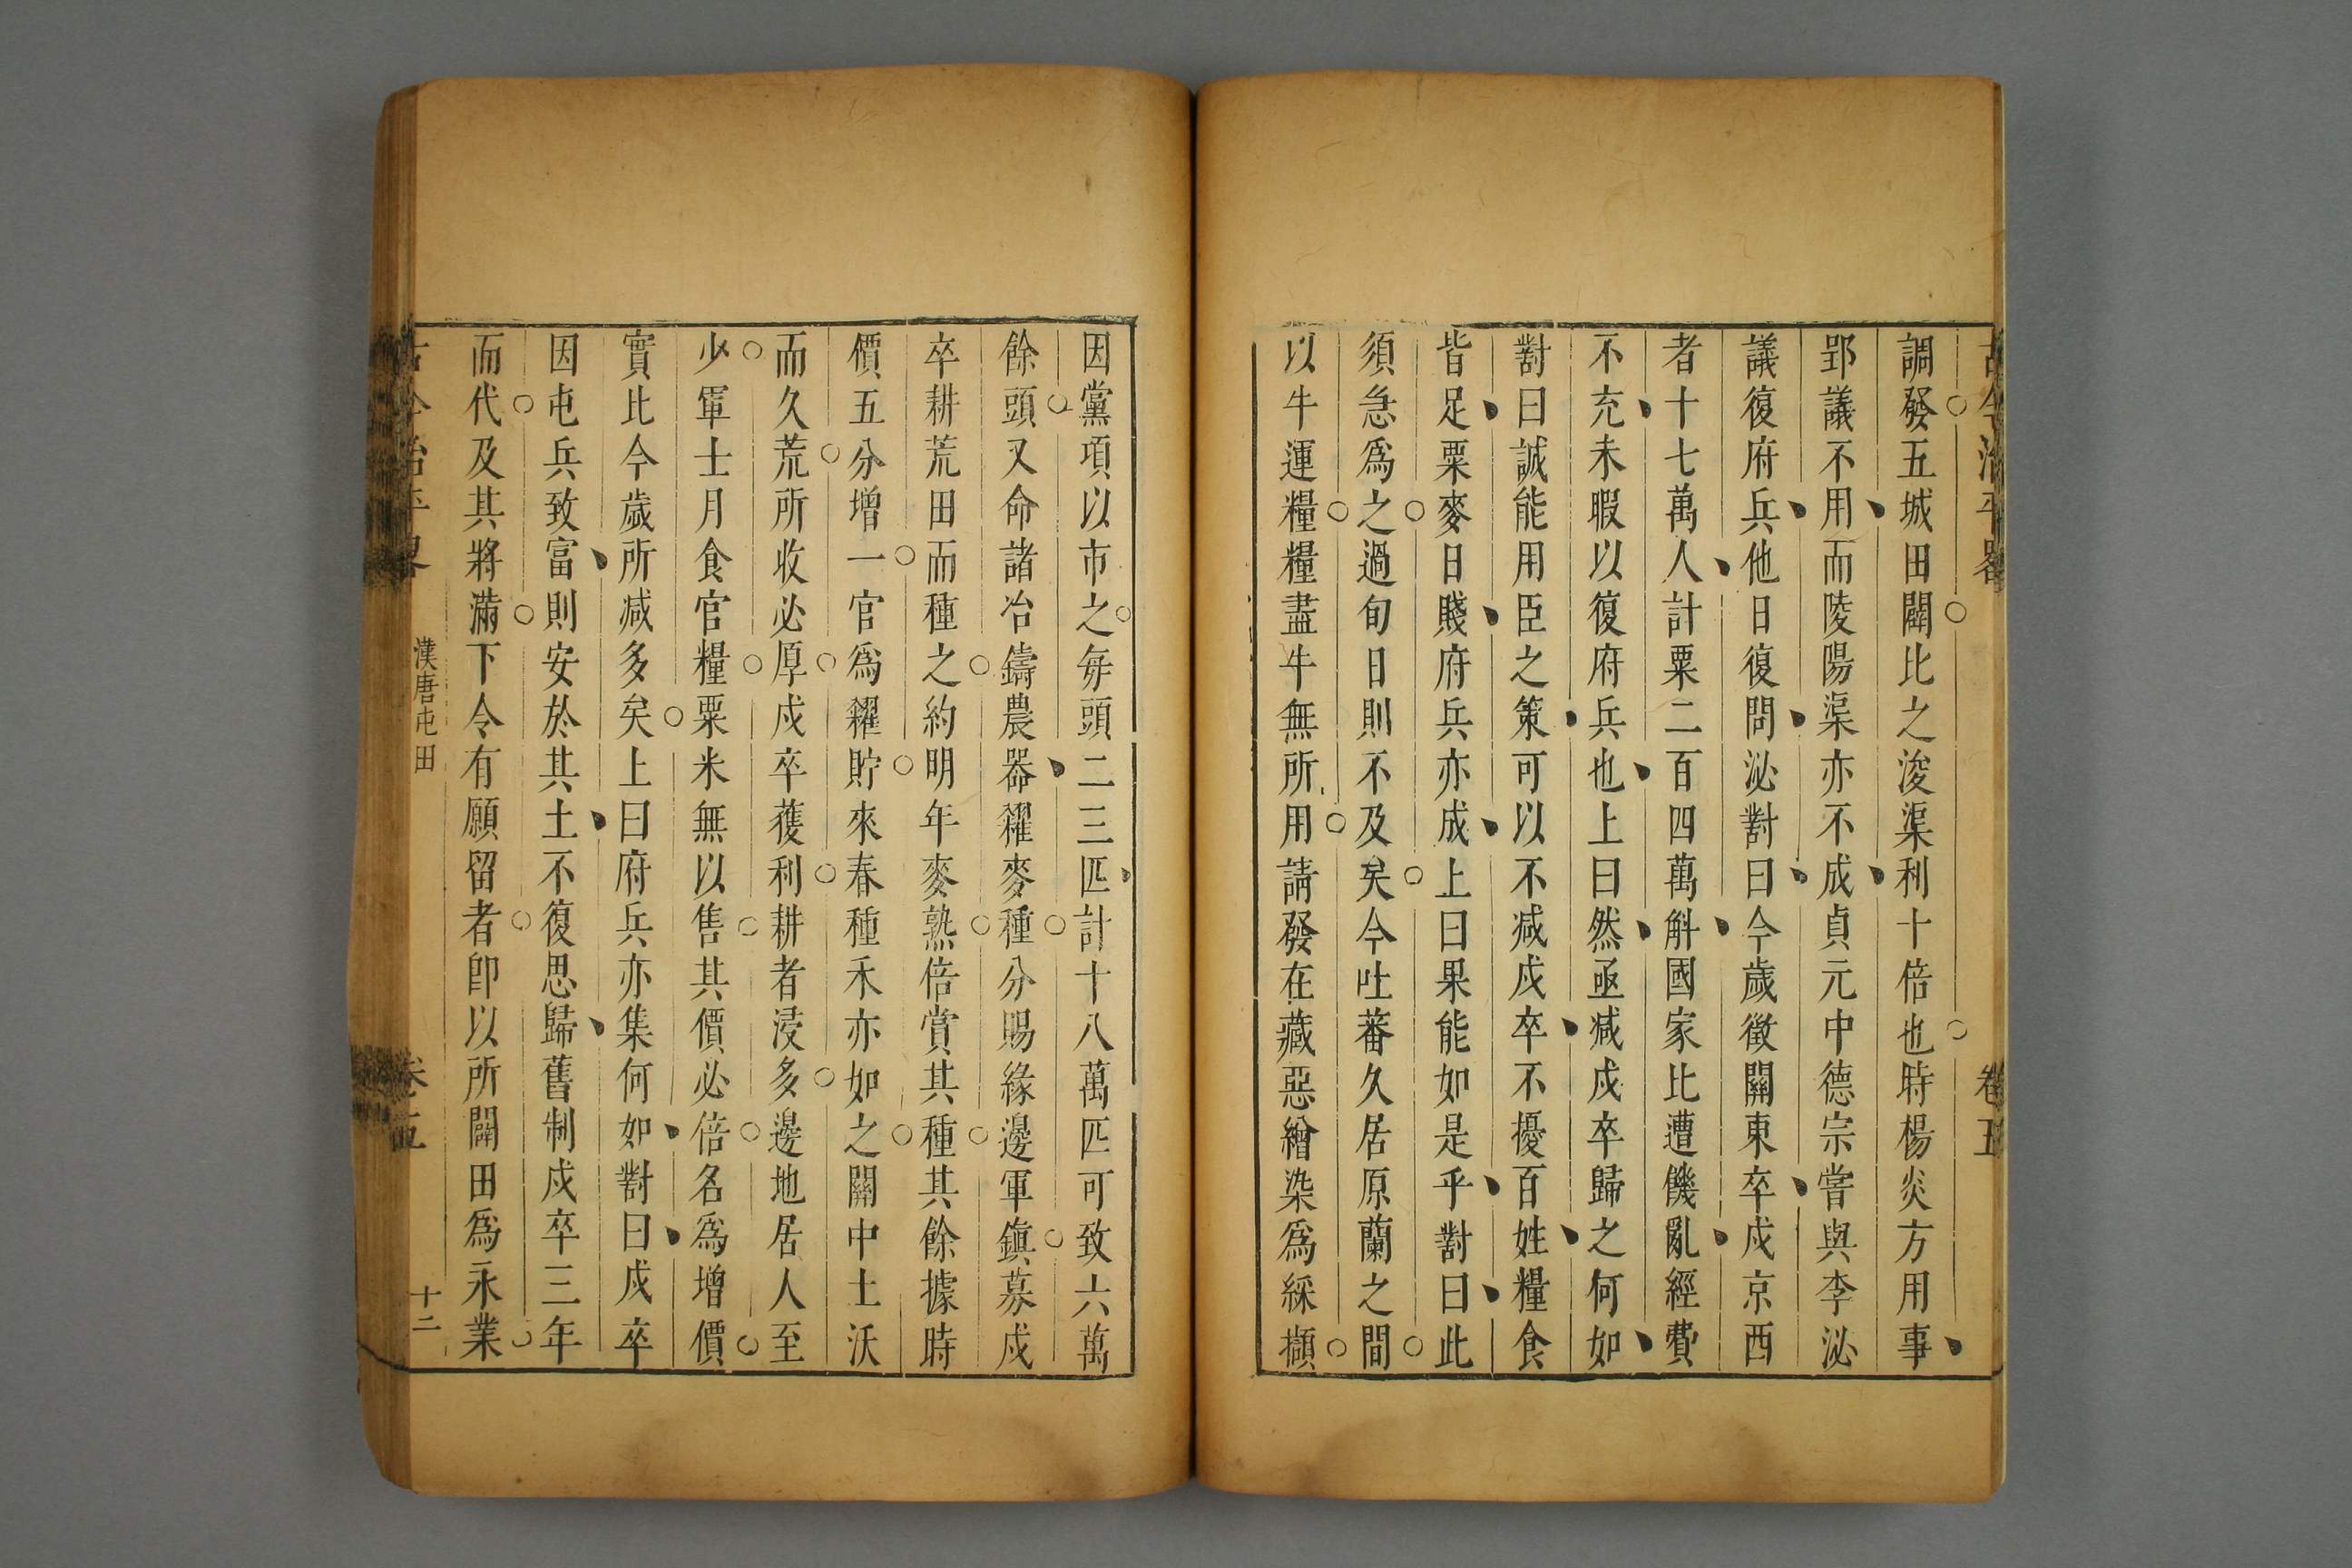 古今治平畧 卷五
調發五城田闢比之浚渠利十倍也時楊炎方用事
郢議不用而陵陽渠亦不成貞元中德宗嘗與李泌
議復府兵他日復問泌對曰今歲徵關東卒戍京西
者十七萬人計粟二百四萬斛國家比遭饑亂經費
不充未暇以復府兵也上曰然亟減戍卒歸之何如
對曰誠能用臣之策可以不減戍卒不擾百姓糧食
皆足粟麥日賤府兵亦成上曰果能如是乎對曰此
須急爲之過旬日則不及矣今吐蕃久居原蘭之間
以牛運糧糧盡牛無所用請發左藏惡繒染爲綵纈
因黨項以市之每頭二三匹計十八萬匹可致六萬
餘頭又命諸冶鑄農器糴麥種分賜緣邊軍鎮募戍
卒耕荒田而種之約明年麥熟倍賞其種其餘據時
價五分增一官爲糴貯來春種禾亦如之關中土沃
而久荒所收必厚戍卒獲利耕者浸多邊地居人至
少軍士月食官糧粟米無以售其價必倍名爲增價
實比今歲所減多矣上曰府兵亦集何如對曰戍卒
因屯兵致富則安於其土不復思歸舊制戍卒三年
而代及其將滿下令有願留者卽以所闢田爲永業
古今治平畧 漢唐屯田 卷五 十二